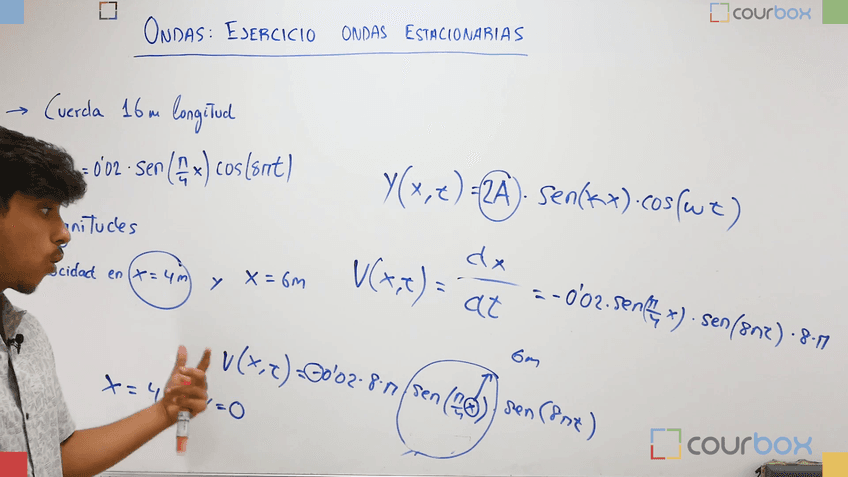 courbox
ONDAS: EJERCICIO ONDAS ESTACIONARIAS
→ Cuerda 16m longitud
=0'02·sen(π/4 x)cos(8πt)
y(x,t)=2A·sen(kx)·cos(ωt)
x=4m y x=6m
V(x,t)=dx/dt=-0'02·sen(π/4 x)·sen(8πt)·8·π
6m
V(x,t)=-0'02·8·π·sen(π/4 x)·sen(8πt)
x=4
=0
courbox